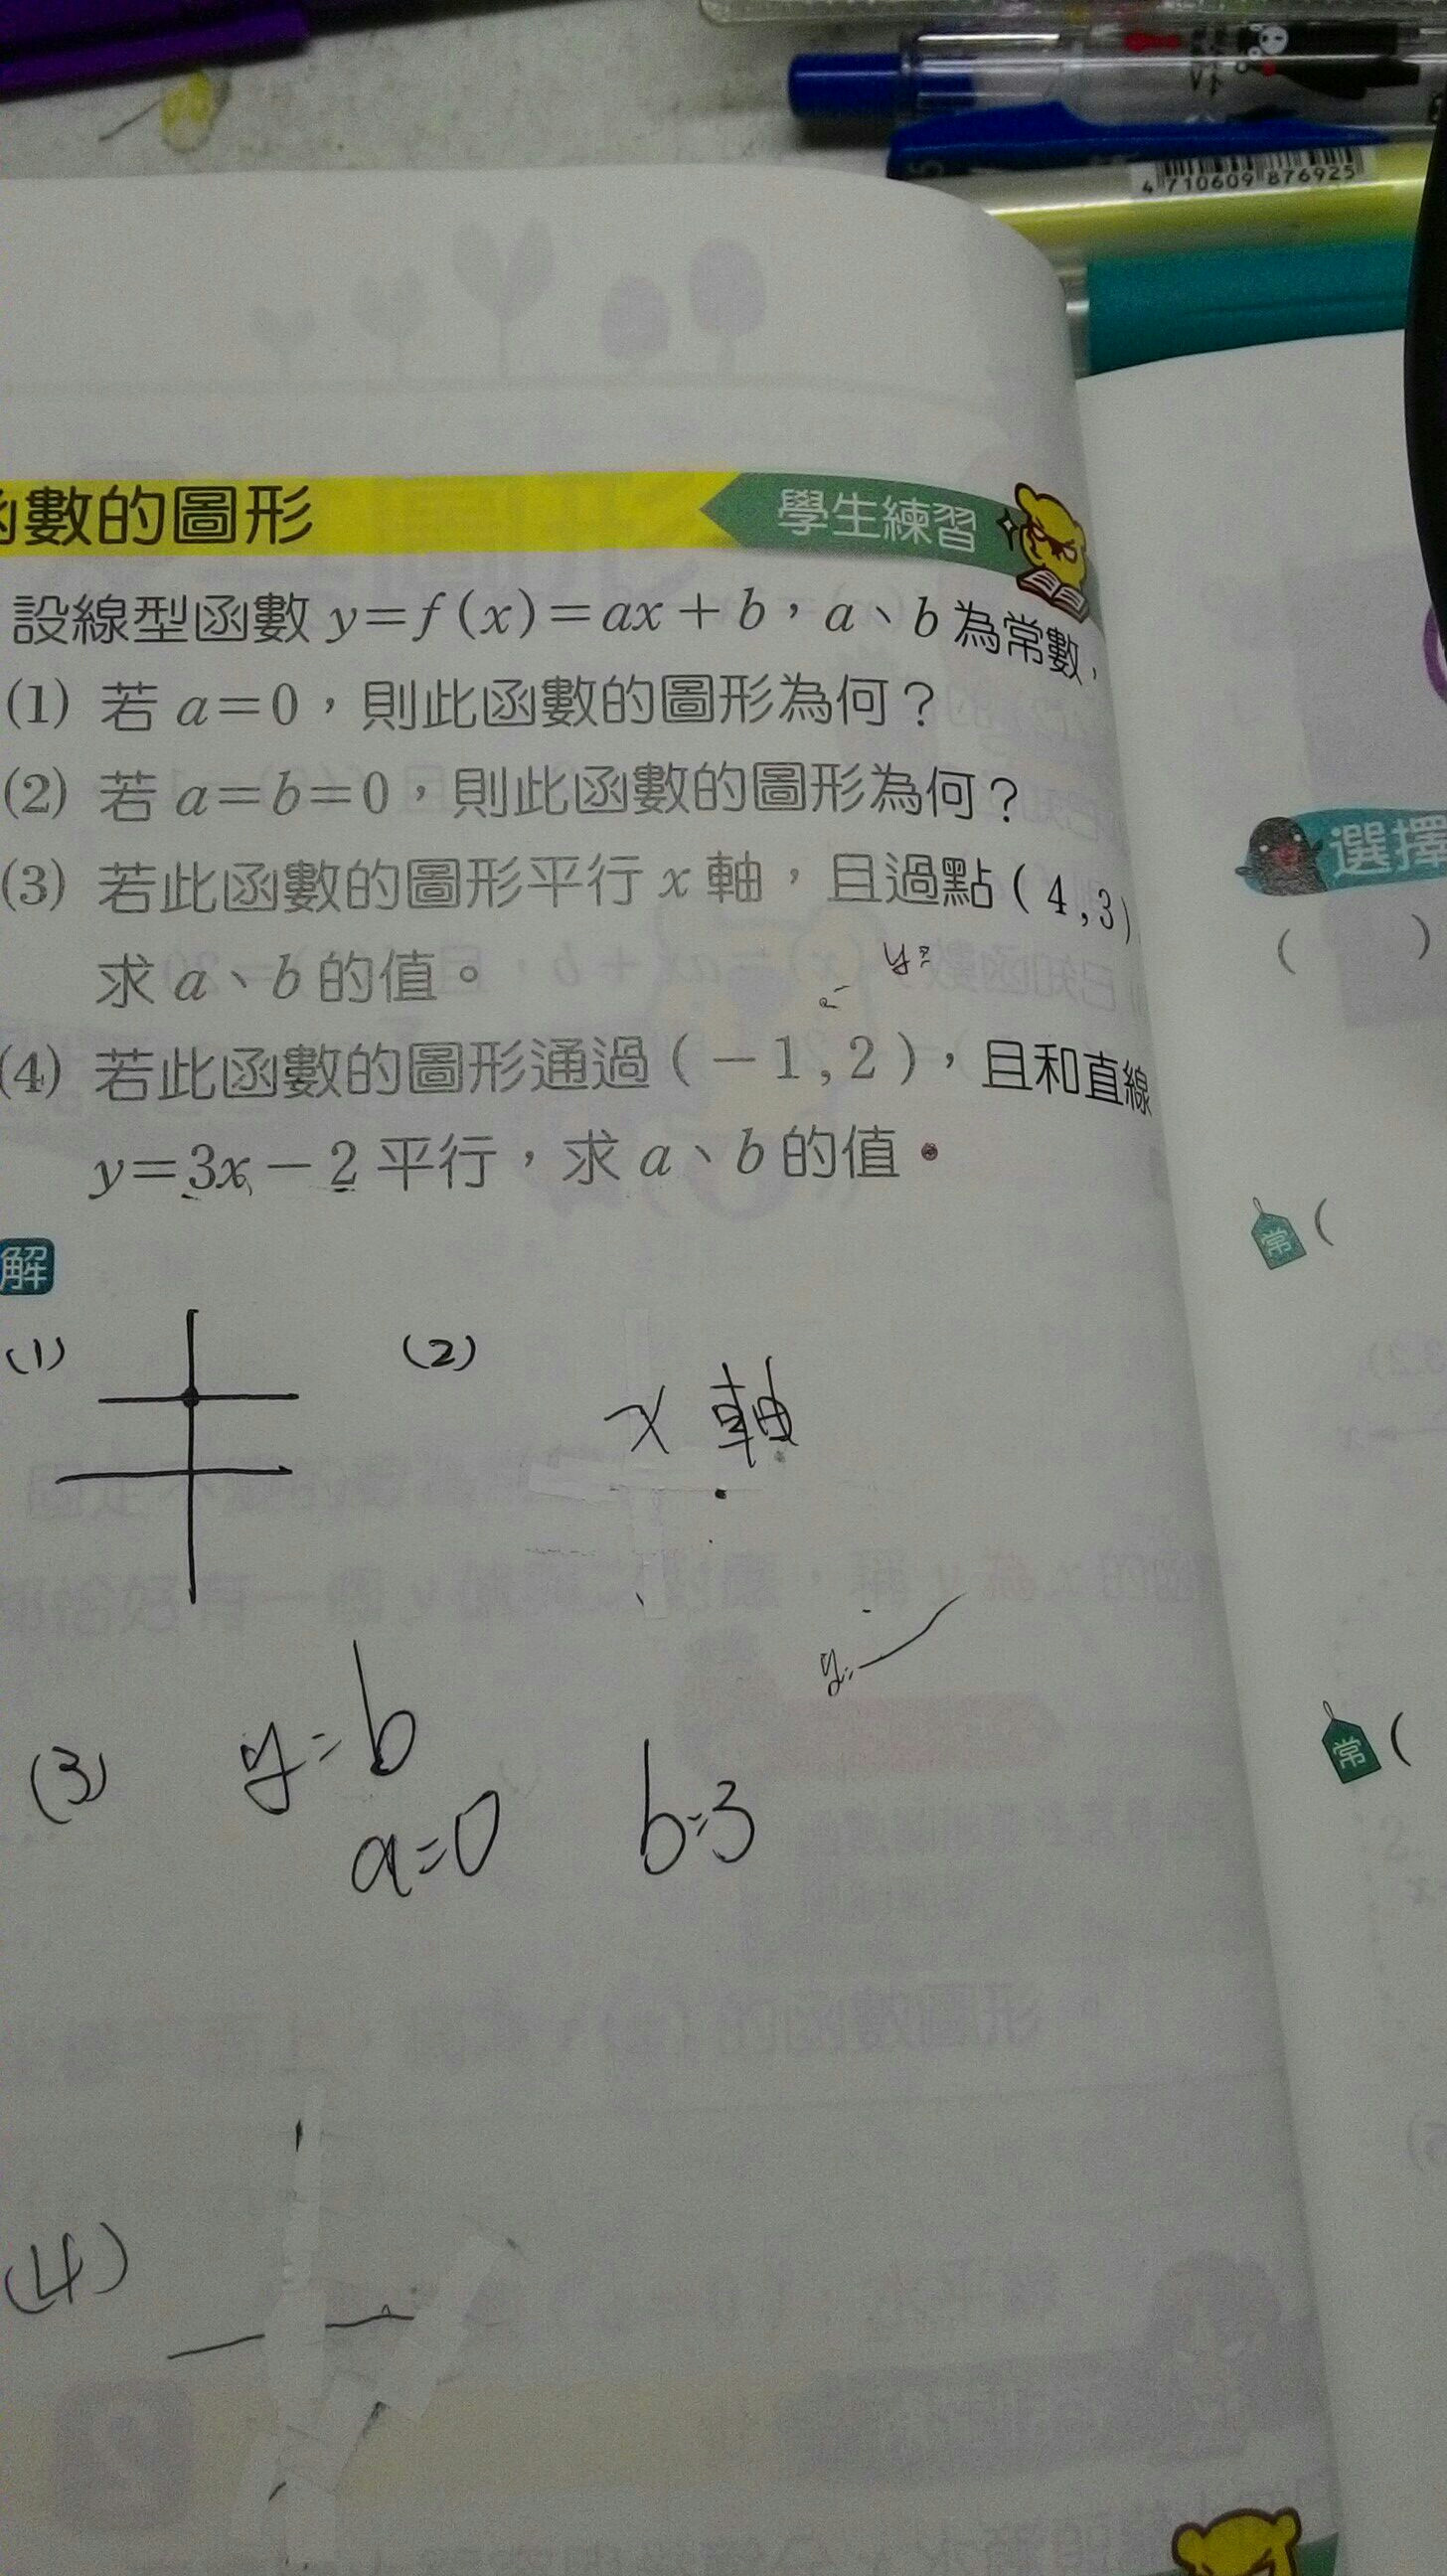 4 710609 876925
數的圖形
學生練習
設線型函數 y=f(x)=ax+b,a、b 為常數,
(1) 若 a=0,則此函數的圖形為何?
(2) 若 a=b=0,則此函數的圖形為何?
(3) 若此函數的圖形平行 x 軸,且過點 (4,3)
求 a、b 的值。
y=
(4) 若此函數的圖形通過 (-1,2),且和直線
y=3x-2 平行,求 a、b 的值。
解
(1)
(2)
x 軸
y=
(3) y=b
a=0 b=3
(4)
選擇
( )
常 (
常 (